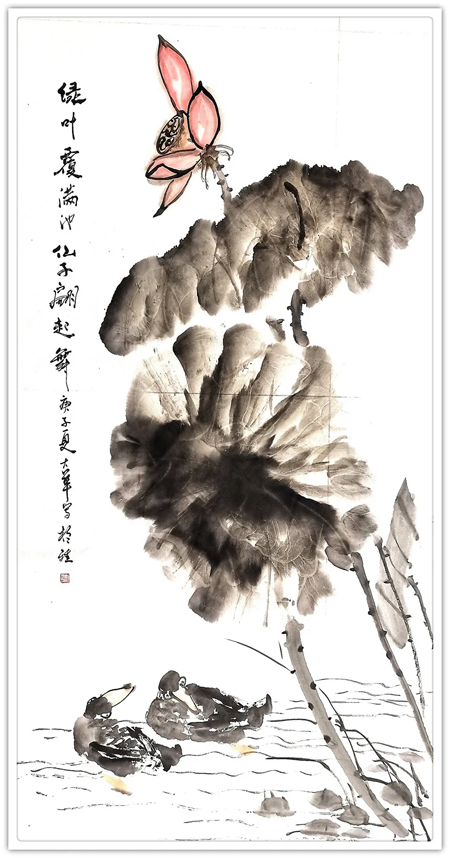 绿叶覆满池仙子翩起舞庚子夏大华写於